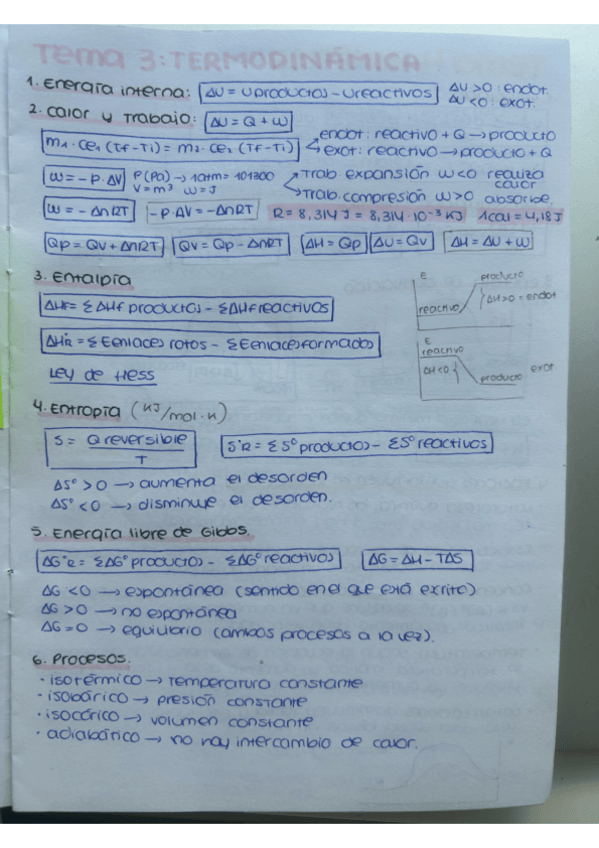 Tema 3: TERMODINÁMICA
1. Energía interna: ΔU = Uproductos - Ureactivos ΔU > 0 : endot.
ΔU < 0 : exot.
2. Calor y Trabajo: ΔU = Q + W
m1 · Ce1 (Tf - Ti) = m2 · Ce2 (Tf - Ti) endot: reactivo + Q → producto
exot: reactivo → producto + Q
W = -P · ΔV P(Pa) → 1atm = 101300 Trab. expansión W<0 realiza
V = m³ W = J calor
Trab. compresión W>0 absorbe.
W = -ΔnRT -P·ΔV = -ΔnRT R = 8,314 J = 8,314·10⁻³ KJ 1cal = 4,18J
Qp = Qv + ΔnRT Qv = Qp - ΔnRT ΔH = Qp ΔU = Qv ΔH = ΔU + W
3. Entalpía
ΔHf = Σ ΔHf productos - ΣΔHf reactivos
E producto
reactivo ΔH>0 = endot
ΔH°R = ΣEenlaces rotos - ΣEenlaces formados
E
reactivo
ΔH<0 producto exot
Ley de Hess
4. Entropía (KJ/mol·K)
S = Q reversible / T S°R = Σ S° productos - Σ S° reactivos
ΔS° > 0 → aumenta el desorden
ΔS° < 0 → disminuye el desorden.
5. Energía libre de Gibbs.
ΔG°R = ΣΔG° productos - ΣΔG° reactivos ΔG = ΔH - TΔS
ΔG < 0 → espontánea (sentido en el que está exrito)
ΔG > 0 → no espontánea
ΔG = 0 → equilibrio (ambos procesos a la vez).
6. Procesos.
· isotérmico → temperatura constante
· isobárico → presión constante
· isocórico → volumen constante
· adiabático → no hay intercambio de calor.